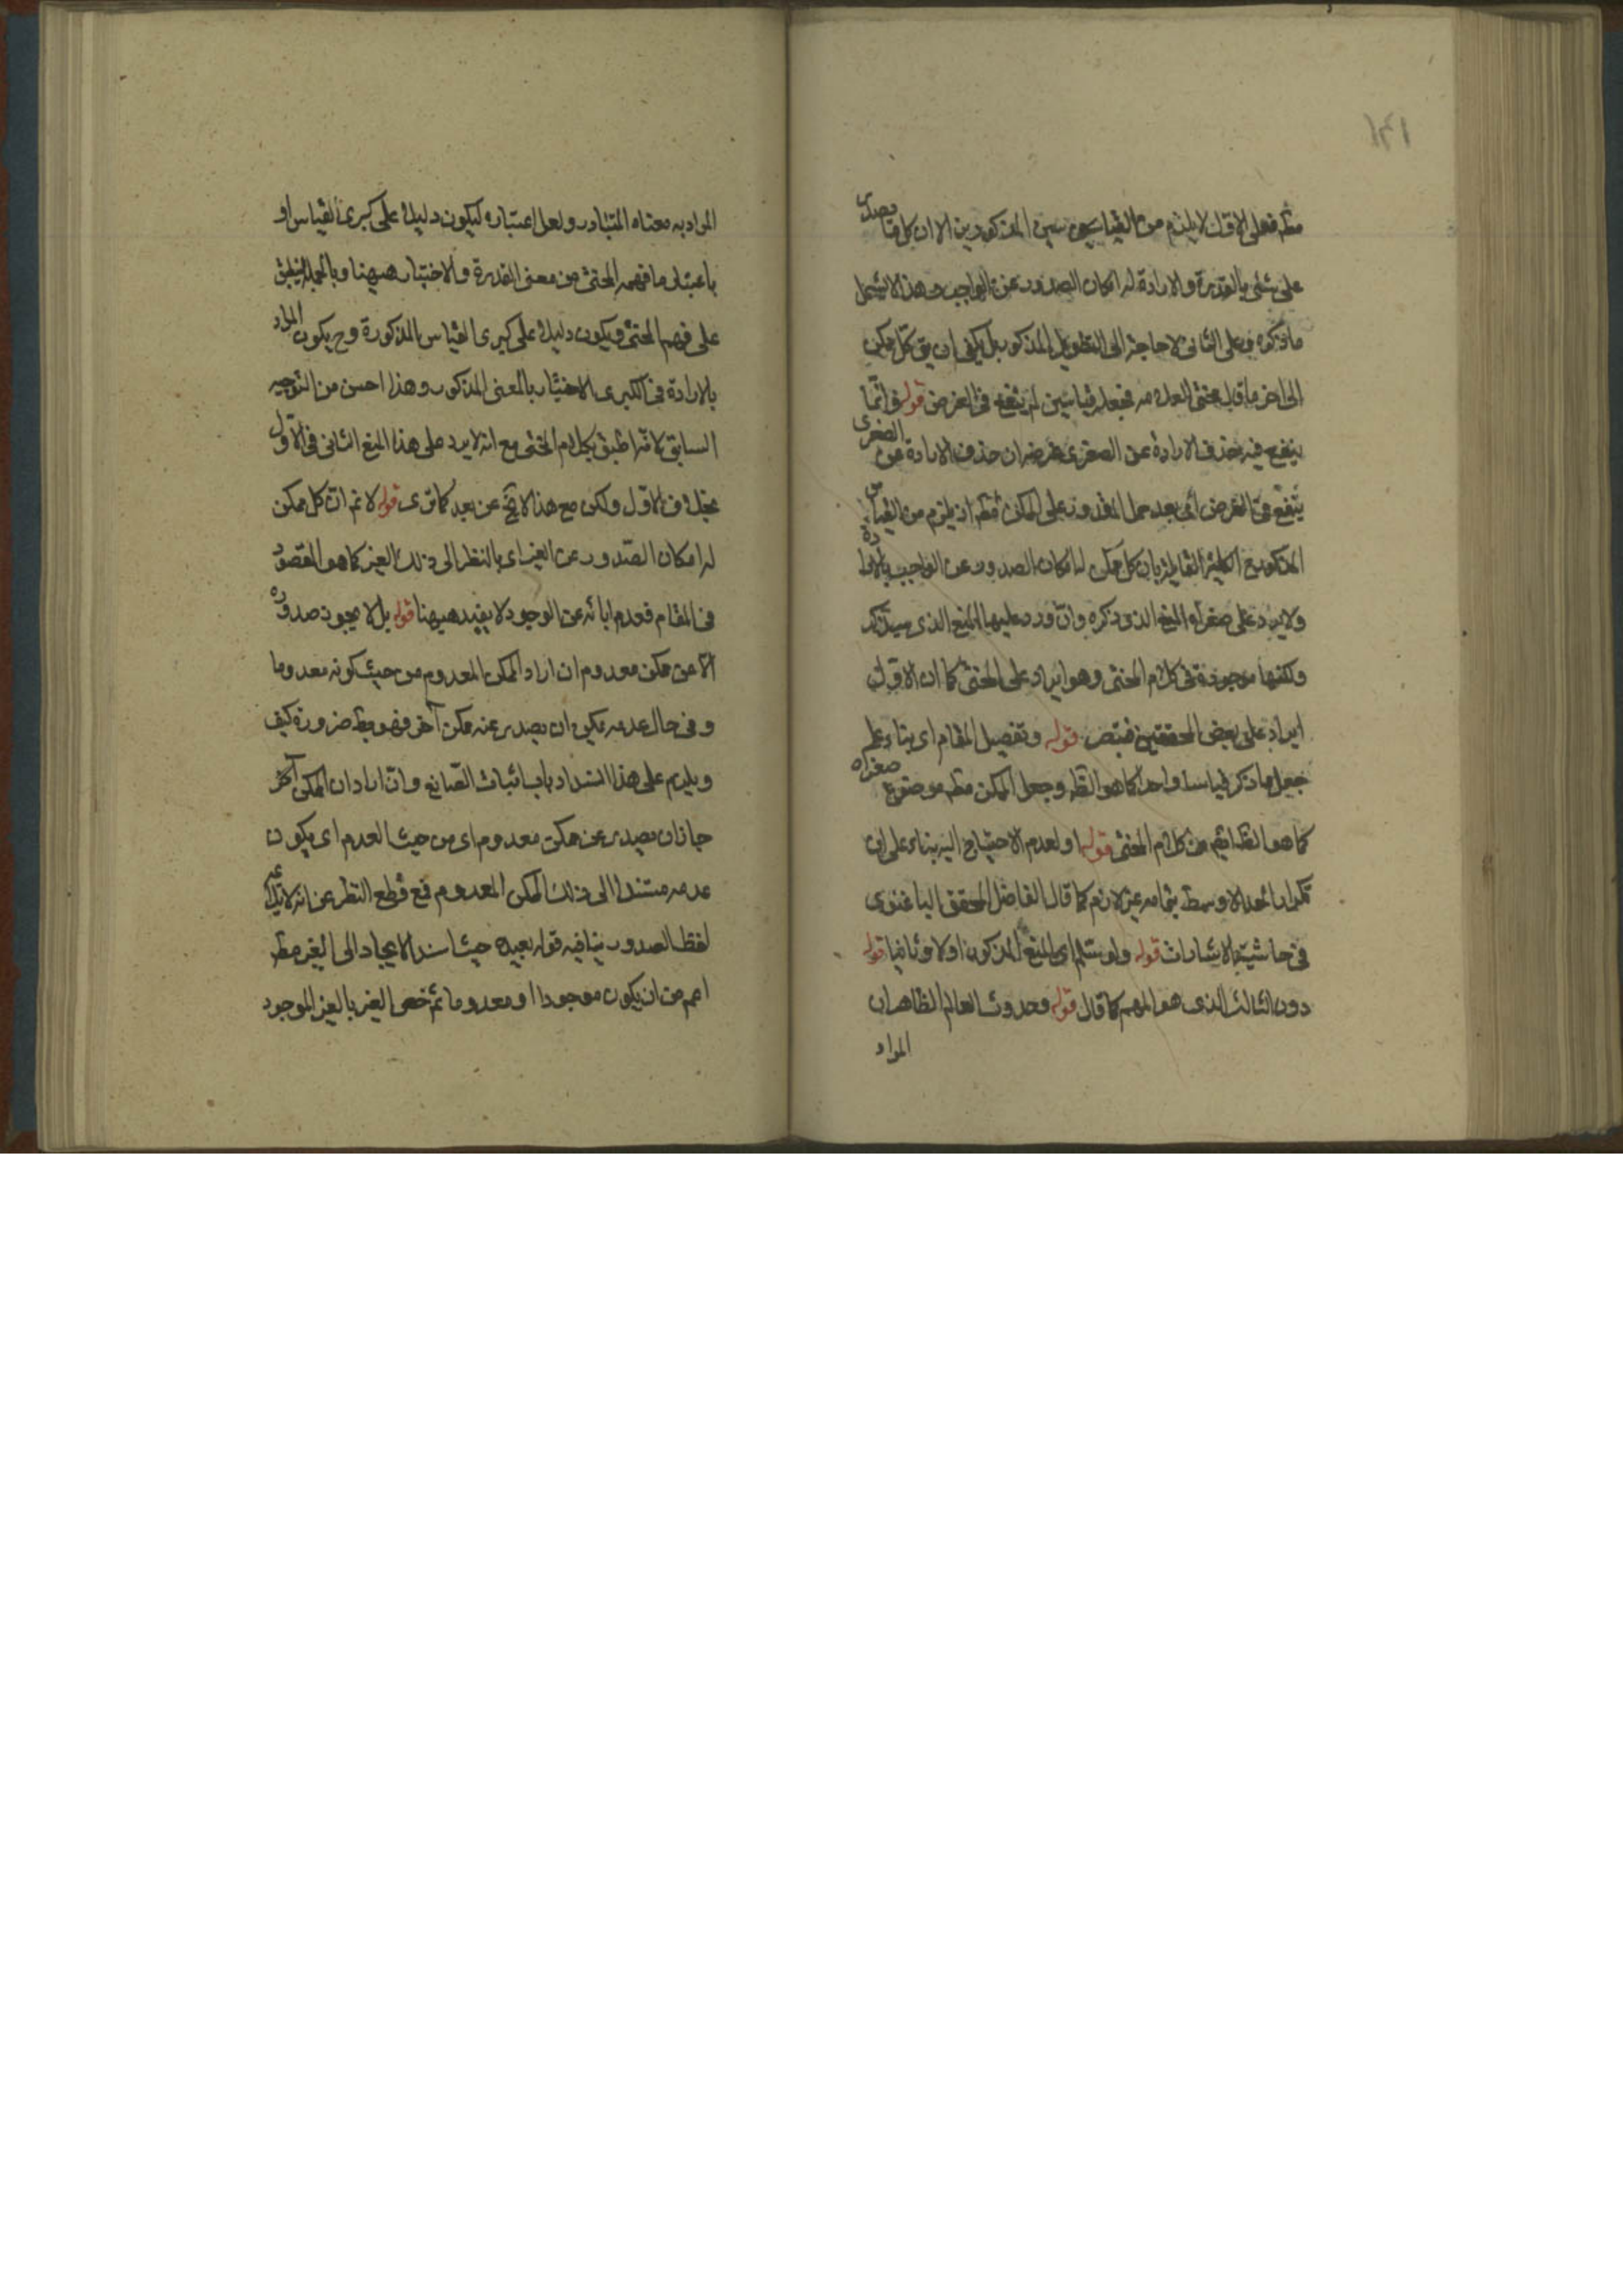 ١٣١
مطر فعلى الاول لا يلزم من القياسين المذكورين الا ان كل ما يصدق
على شئ بالقدرة والارادة له امكان الصدور عن الواجب وهذا لا يشمل
ما ذكره وعلى الثانى لا حاجة الى التطويل المذكور بل يكفى ان يق كل ممكن
الى اخر ما قاله المحشى العلامه فجعله قياسين لم ينفع فى الغرض قوله وانما
ينفع فيه حذف الارادة عن الصغرى غرضه ان حذف الارادة عن الصغرى
ينفع فى الغرض اى بعد حمل المقدور على الممكن مطر اذ يلزم من القياس
المذكور مع الكلية القايلة بان كل ممكن له امكان الصدور عن الواجب بالارادة
ولا يرد على صغراه المنع الذى ذكره وان ورد عليها المنع الذى سيذكر
ولكنها موجودة فى كلام المحشى وهو ايراد على المحشى كما ان الاول
ايراد على بعض المحققين فتبصر قوله وتفصيل المقام اى بناء على
جعل ما ذكر قياسا واحدا كما هو الظ وجعل الممكن مطر موضوع صغراه
كما هو الظ ايضا من كلام المحشى قوله او لعدم الاحتياج اليه بناء على ان
تكرار الحد الاوسط بتمامه غير لازم كما قال الفاضل المحقق الباغنوى
فى حاشية الاشارات قوله ولو سلم اى المنع المذكور اولا وثانيا قوله
دون الثالث الذى هو المهم كما قال قوله وحدوث العالم الظاهر ان
المراد
المراد به معناه المتبادر ولعل اعتباره ليكون دليلا على كبرى القياس او
باعتبار ما فهمه المحشى من معنى القدرة والاختيار هيهنا وبالجملة ينطبق
على فهم المحشى ويكون دليلا على كبرى القياس المذكورة وح يكون المراد
بالارادة فى الكبرى الاختيار بالمعنى المذكور وهذا احسن من التوجيه
السابق لانه اطبق بكلام المحشى مع انه لا يرد على هذا المنع الثانى فى الاول
بخلاف الاول ولكن مع هذا لا يخ عن بعد كما ترى قوله لا نم ان كل ممكن
له امكان الصدور عن الغير اى بالنظر الى ذلك الغير كما هو المقصود
فى المقام فعدم ابائه عن الوجود لا يفيد هيهنا قوله بل لا يجوز صدوره
الا عن ممكن معدوم ان اراد الممكن المعدوم من حيث كونه معدوما
وفى حال عدمه يمكن ان يصدر عنه ممكن آخر فهو بط ضرورة كيف
ويلزم على هذا انسداد باب اثبات الصانع وان اراد ان الممكن آخر
جاز ان يصدر عن ممكن معدوم اى من حيث العدم اى يكون
عدمه مستندا الى ذلك الممكن المعدوم فمع قطع النظر عن انه لا يلايمه
لفظ الصدور ينافيه قوله بعيده حيث اسند الايجاد الى الغير مطر
اعم من ان يكون موجودا او معدوما ثم خص الغير بالغير الموجود